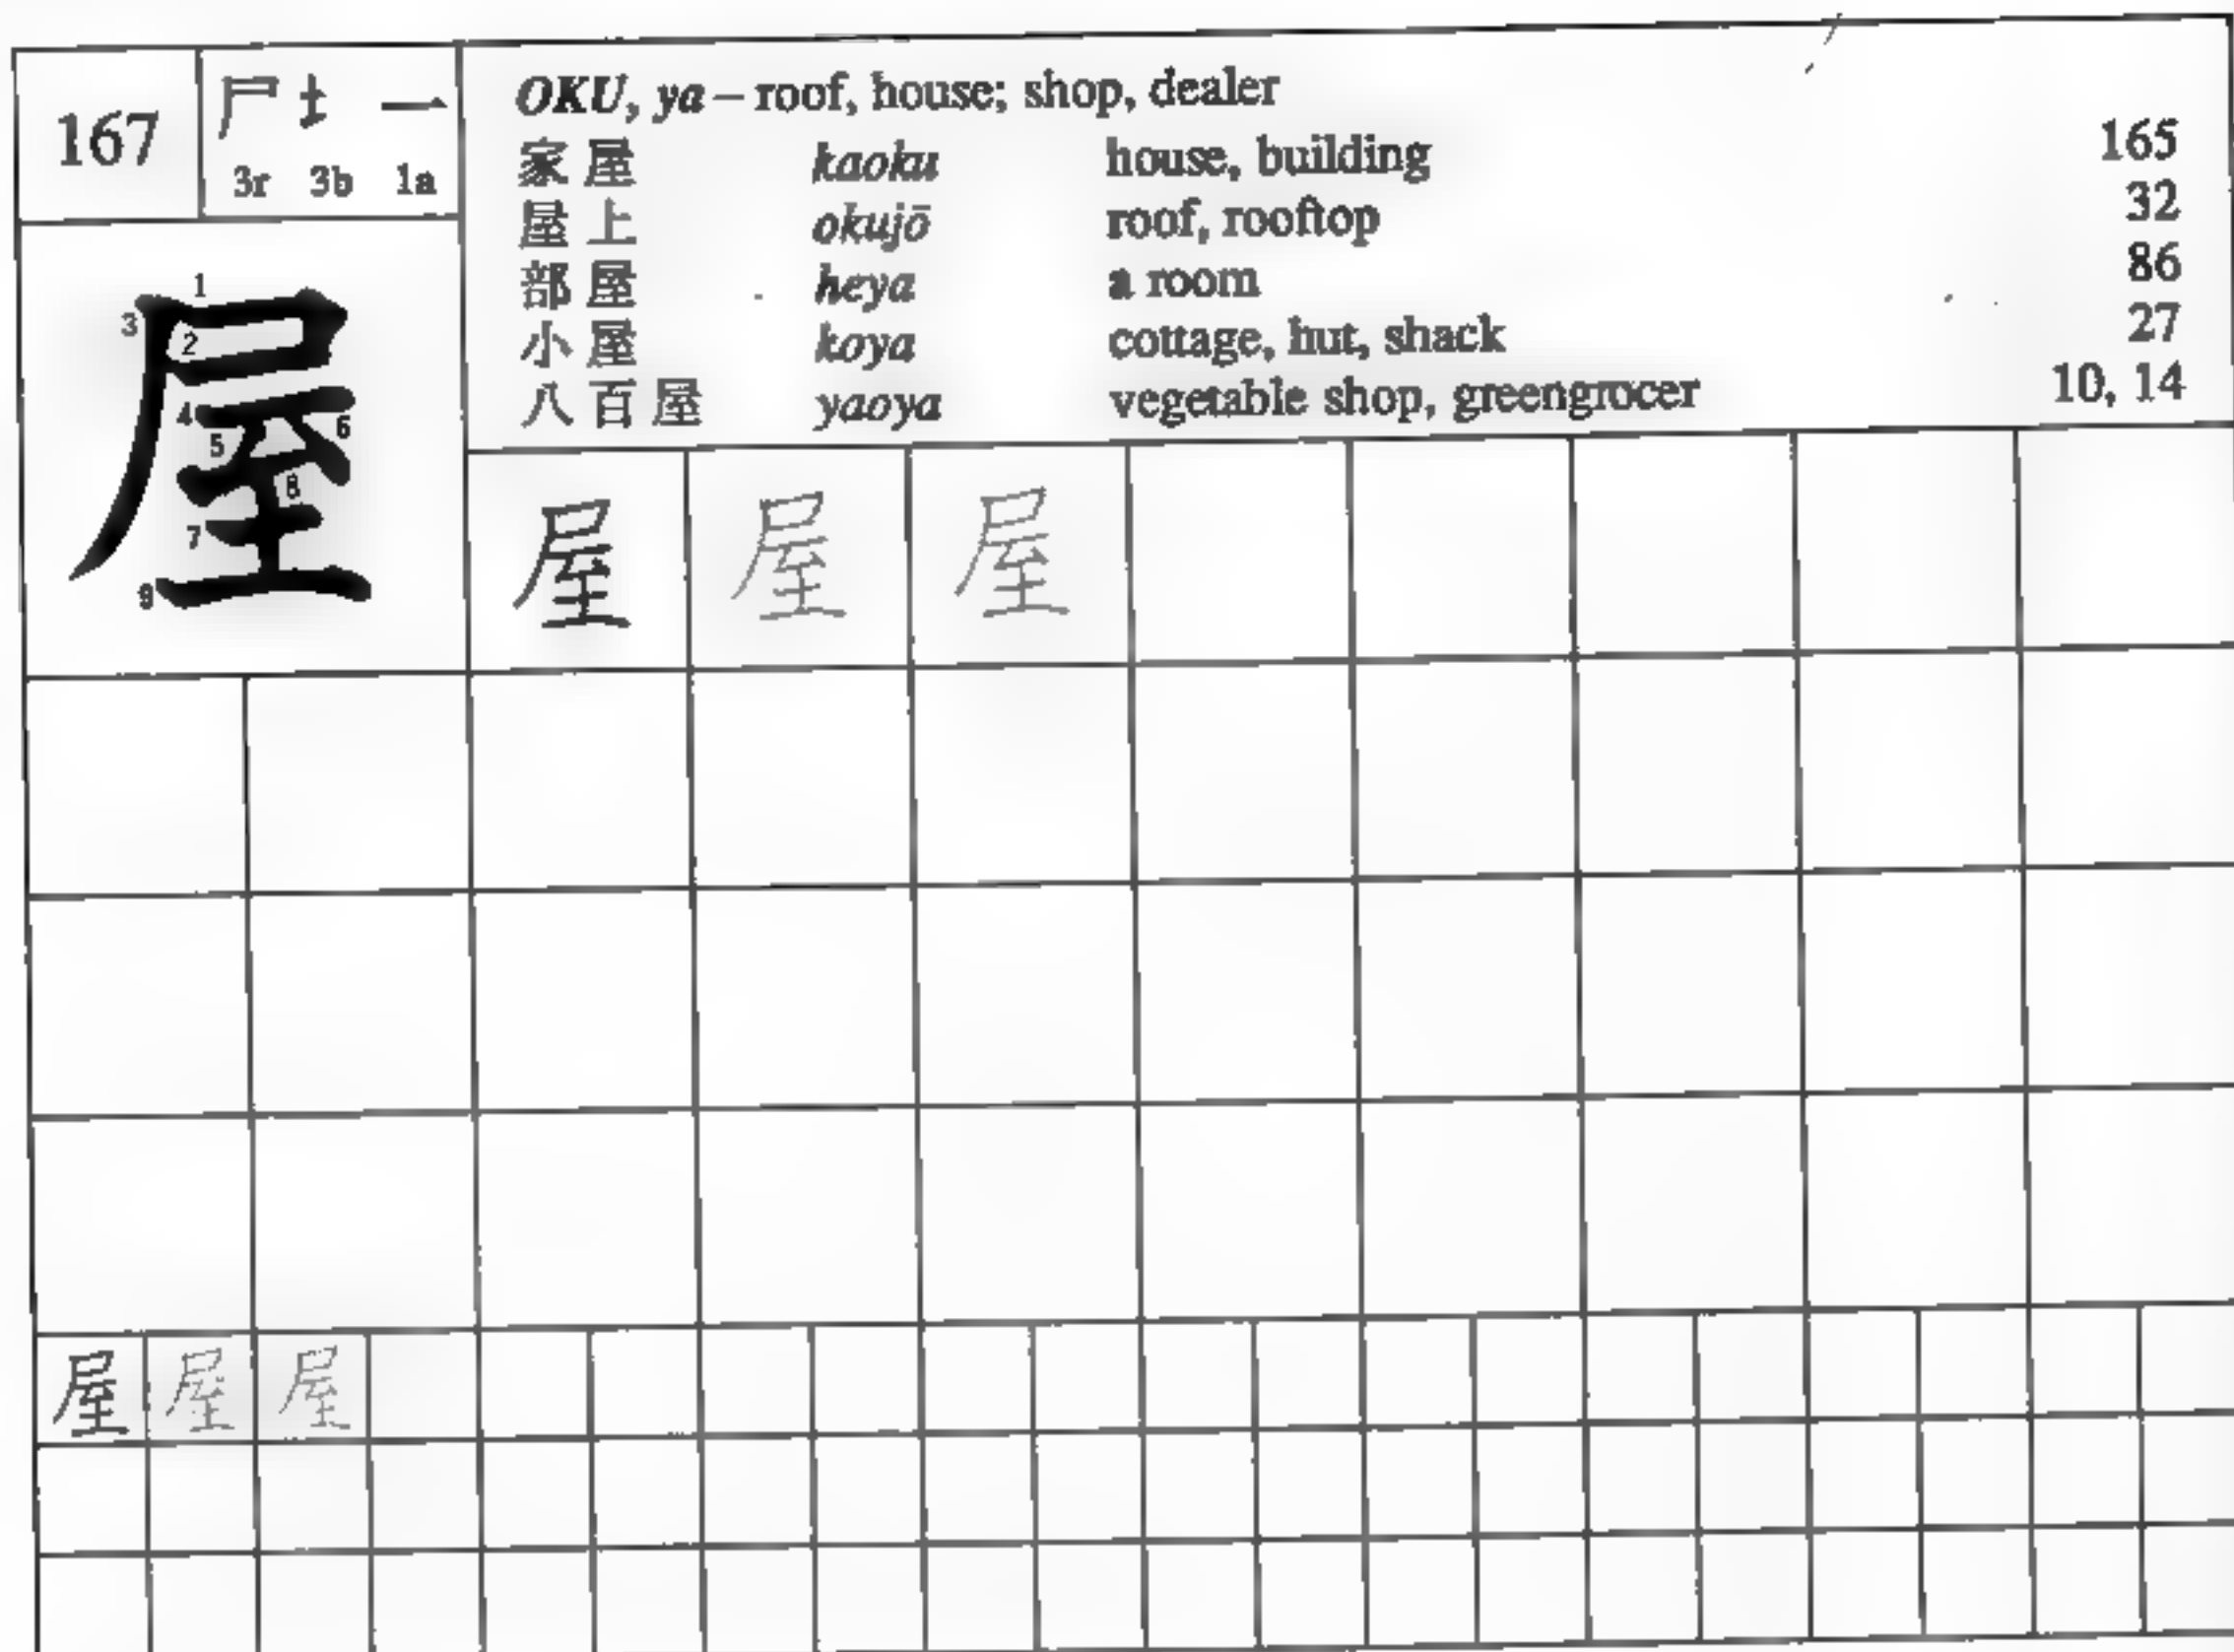 167
尸 土 一
3r 3b 1a
OKU, ya – roof, house; shop, dealer
家屋 kaoku house, building 165
屋上 okujō roof, rooftop 32
部屋 heya a room 86
小屋 koya cottage, hut, shack 27
八百屋 yaoya vegetable shop, greengrocer 10, 14
屋
1
3
2
4
6
5
8
7
9
屋 屋 屋
屋 屋 屋